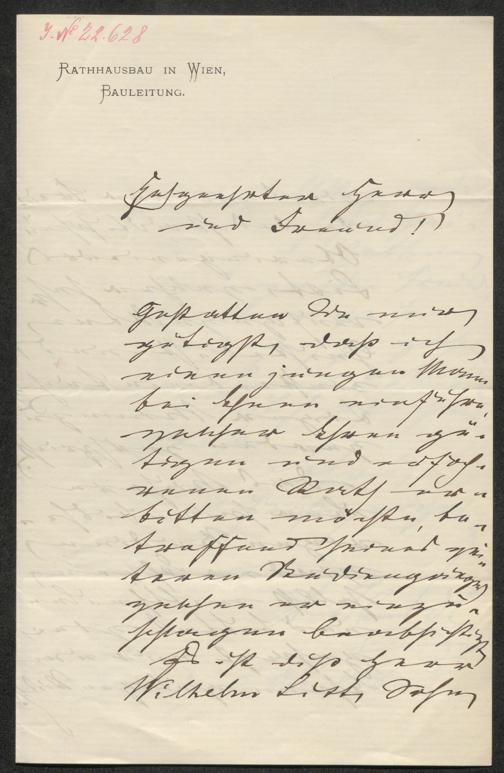 J. No 22.628
RATHHAUSBAU IN WIEN,
BAULEITUNG.
Hochgeehrter Herr
und Freund!
Gestatten Sie mir
gütigst, daß ich
einen jungen Mann
bei Ihnen einführe,
welcher Ihren gü-
tigen und erfah-
renen Rath er-
bitten möchte, be-
treffend seines wei-
teren Studienganges
welchen er einzu-
schlagen beabsichtigt
Es ist dieß Herr
Wilhelm List, Sohn